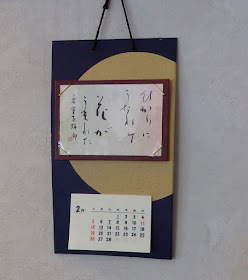 ひかりに
うたれて
花が
うまれた
2月
1 2 3 4
5 6 7 8 9 10 11
12 13 14 15 16 17 18
19 20 21 22 23 24 25
26 27 28